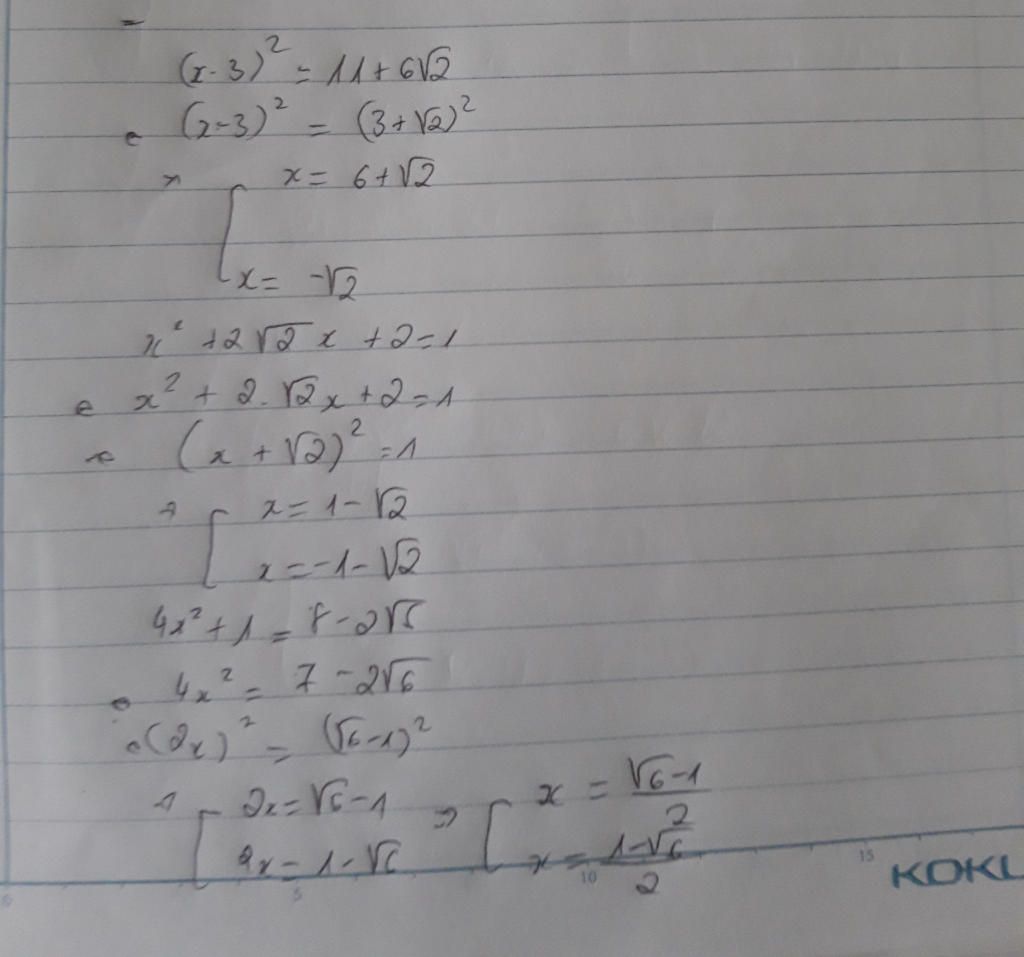 (x-3)² = 11 + 6√2
⇔ (x-3)² = (3+√2)²
⇒ [ x = 6+√2
x = -√2
x² + 2√2 x + 2 = 1
⇔ x² + 2.√2x + 2 = 1
⇔ (x + √2)² = 1
⇒ [ x = 1 - √2
x = -1 - √2
4x² + 1 = 8 - 2√6
⇔ 4x² = 7 - 2√6
⇔ (2x)² = (√6-1)²
⇒ [ 2x = √6 - 1 ⇒ [ x = (√6-1)/2
2x = 1 - √6 x = (1-√6)/2
5 10 15 KOKU